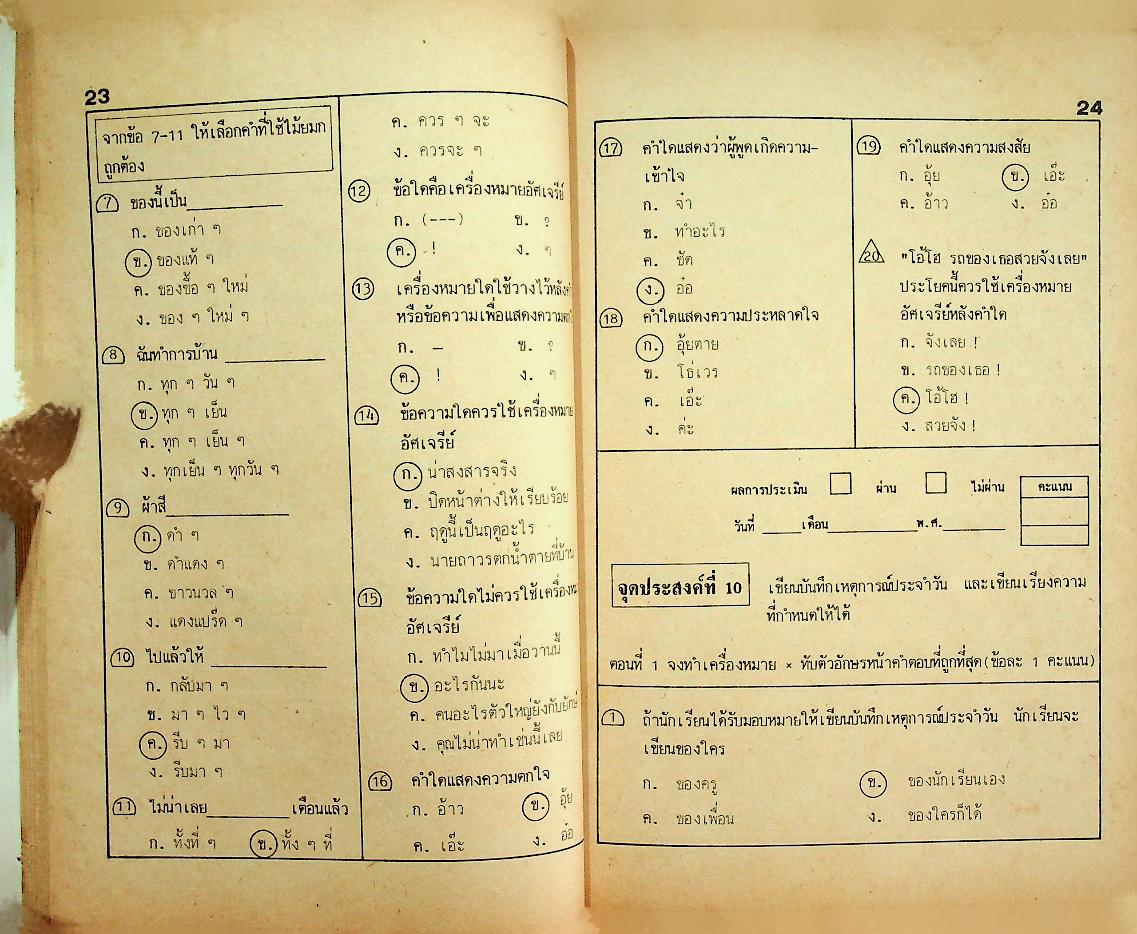 23
จากข้อ 7-11 ให้เลือกคำที่ใช้ไม้ยมก
ถูกต้อง
7 ของนี้เป็น
ก. ของเก่า ๆ
ข. ของแท้ ๆ
ค. ของซื้อ ๆ ใหม่
ง. ของ ๆ ใหม่ ๆ
8 ฉันทำการบ้าน
ก. ทุก ๆ วัน ๆ
ข. ทุก ๆ เย็น
ค. ทุก ๆ เย็น ๆ
ง. ทุกเย็น ๆ ทุกวัน ๆ
9 ผ้าสี
ก. ดำ ๆ
ข. ดำแดง ๆ
ค. ขาวนวล ๆ
ง. แดงแปร๊ด ๆ
10 ไปแล้วให้
ก. กลับมา ๆ
ข. มา ๆ ไว ๆ
ค. รีบ ๆ มา
ง. รีบมา ๆ
11 ไม่น่าเลย เตือนแล้ว
ก. ทั้งที่ ๆ ข. ทั้ง ๆ ที่
ค. ควร ๆ จะ
ง. ควรจะ ๆ
12 ข้อใดคือเครื่องหมายอัศเจรีย์
ก. (---) ข. ?
ค. ! ง. ๆ
13 เครื่องหมายใดใช้วางไว้หลังคำ
หรือข้อความเพื่อแสดงความตก
ก. – ข. ?
ค. ! ง. ๆ
14 ข้อความใดควรใช้เครื่องหมาย
อัศเจรีย์
ก. น่าสงสารจริง
ข. ปิดหน้าต่างให้เรียบร้อย
ค. ฤดูนี้เป็นฤดูอะไร
ง. นายถาวรตกน้ำตายที่บ้าน
15 ข้อความใดไม่ควรใช้เครื่องหมาย
อัศเจรีย์
ก. ทำไมไม่มาเมื่อวานนี้
ข. อะไรกันนะ
ค. คนอะไรตัวใหญ่ยังกับยักษ์
ง. คุณไม่น่าทำเช่นนี้เลย
16 คำใดแสดงความตกใจ
ก. อ้าว ข. อุ้ย
ค. เอ๊ะ ง. อ๋อ
24
17 คำใดแสดงว่าผู้พูดเกิดความ-
เข้าใจ
ก. จ๋า
ข. ทำอะไร
ค. ชัด
ง. อ๋อ
18 คำใดแสดงความประหลาดใจ
ก. อุ้ยตาย
ข. โธ่เวร
ค. เอ๊ะ
ง. ค่ะ
19 คำใดแสดงความสงสัย
ก. อุ้ย ข. เอ๊ะ
ค. อ้าว ง. อ๋อ
20 "โอ้โฮ รถของเธอสวยจังเลย"
ประโยคนี้ควรใช้เครื่องหมาย
อัศเจรีย์หลังคำใด
ก. จังเลย !
ข. รถของเธอ !
ค. โอ้โฮ !
ง. สวยจัง !
ผลการประเมิน ผ่าน ไม่ผ่าน คะแนน
วันที่ เดือน พ.ศ.
จุดประสงค์ที่ 10 เขียนบันทึกเหตุการณ์ประจำวัน และเขียนเรียงความ
ที่กำหนดให้ได้
ตอนที่ 1 จงทำเครื่องหมาย × ทับตัวอักษรหน้าคำตอบที่ถูกที่สุด(ข้อละ 1 คะแนน)
1 ถ้านักเรียนได้รับมอบหมายให้เขียนบันทึกเหตุการณ์ประจำวัน นักเรียนจะ
เขียนของใคร
ก. ของครู ข. ของนักเรียนเอง
ค. ของเพื่อน ง. ของใครก็ได้